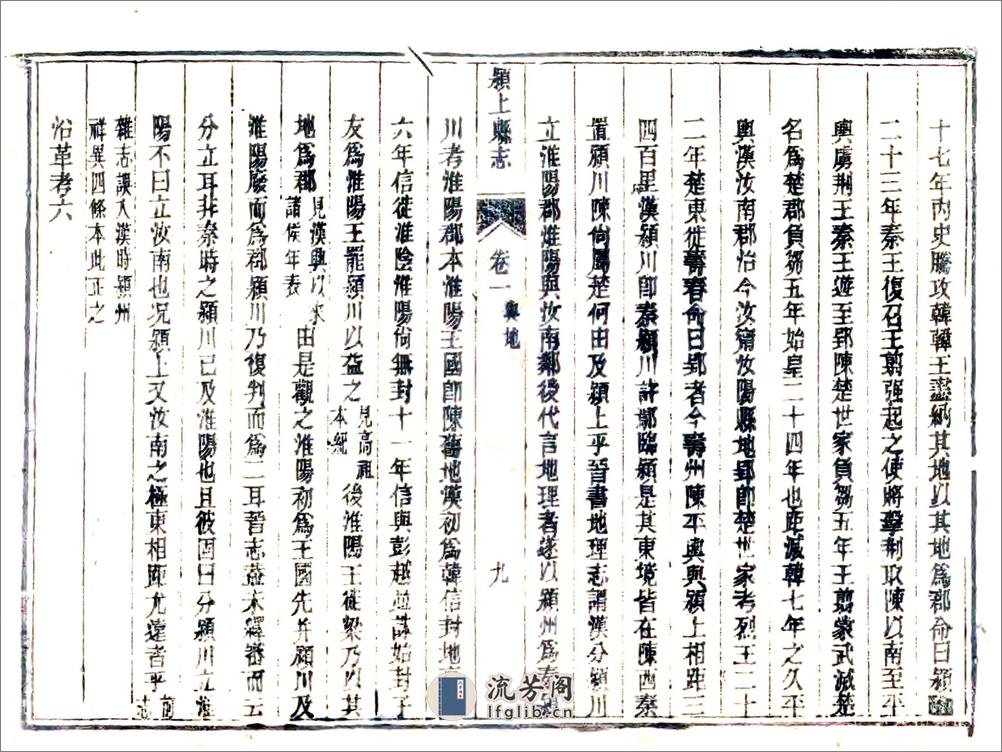 十七年內史騰攻韓韓王盡納其地以其地爲郡命曰潁
二十三年秦王復召王翦强起之使將擊荆取陳以南至平
輿虜荆王秦王遊至郢陳楚世家負芻五年王翦蒙武滅楚
名爲楚郡負芻五年始皇二十四年也距滅韓七年之久平
輿漢汝南郡治今汝寧汝陽縣地郢卽楚世家考烈王二十
二年楚東徙壽春命曰郢者今壽州陳平輿與潁上相距三
四百里漢潁川卽秦潁川許鄢臨潁是其東境皆在陳西秦
置潁川陳尙屬楚何由及潁上乎晉書地理志謂漢分潁川
立淮陽郡淮陽與汝南鄰後代言地理者遂以潁州爲秦潁
潁上縣志
卷一 輿地
九
川考淮陽郡本淮陽王國卽陳舊地漢初爲韓信封地
六年信徙淮陰淮陽尙無封十一年信與彭越並誅始封子
友爲淮陽王罷潁川以益之見高祖本紀後淮陽王徙梁乃以其
地爲郡見漢興以來諸侯年表由是觀之淮陽初爲王國先并潁川及
淮陽廢而爲郡潁川乃復判而爲二耳晉志蓋未釋審而云
分立耳非秦時之潁川已及淮陽也且彼固曰分潁川立淮
陽不曰立汝南也况潁上又汝南之極東相距尤遠者乎
雜志誤入漢時潁州
祥異四條本此正之
沿革考六